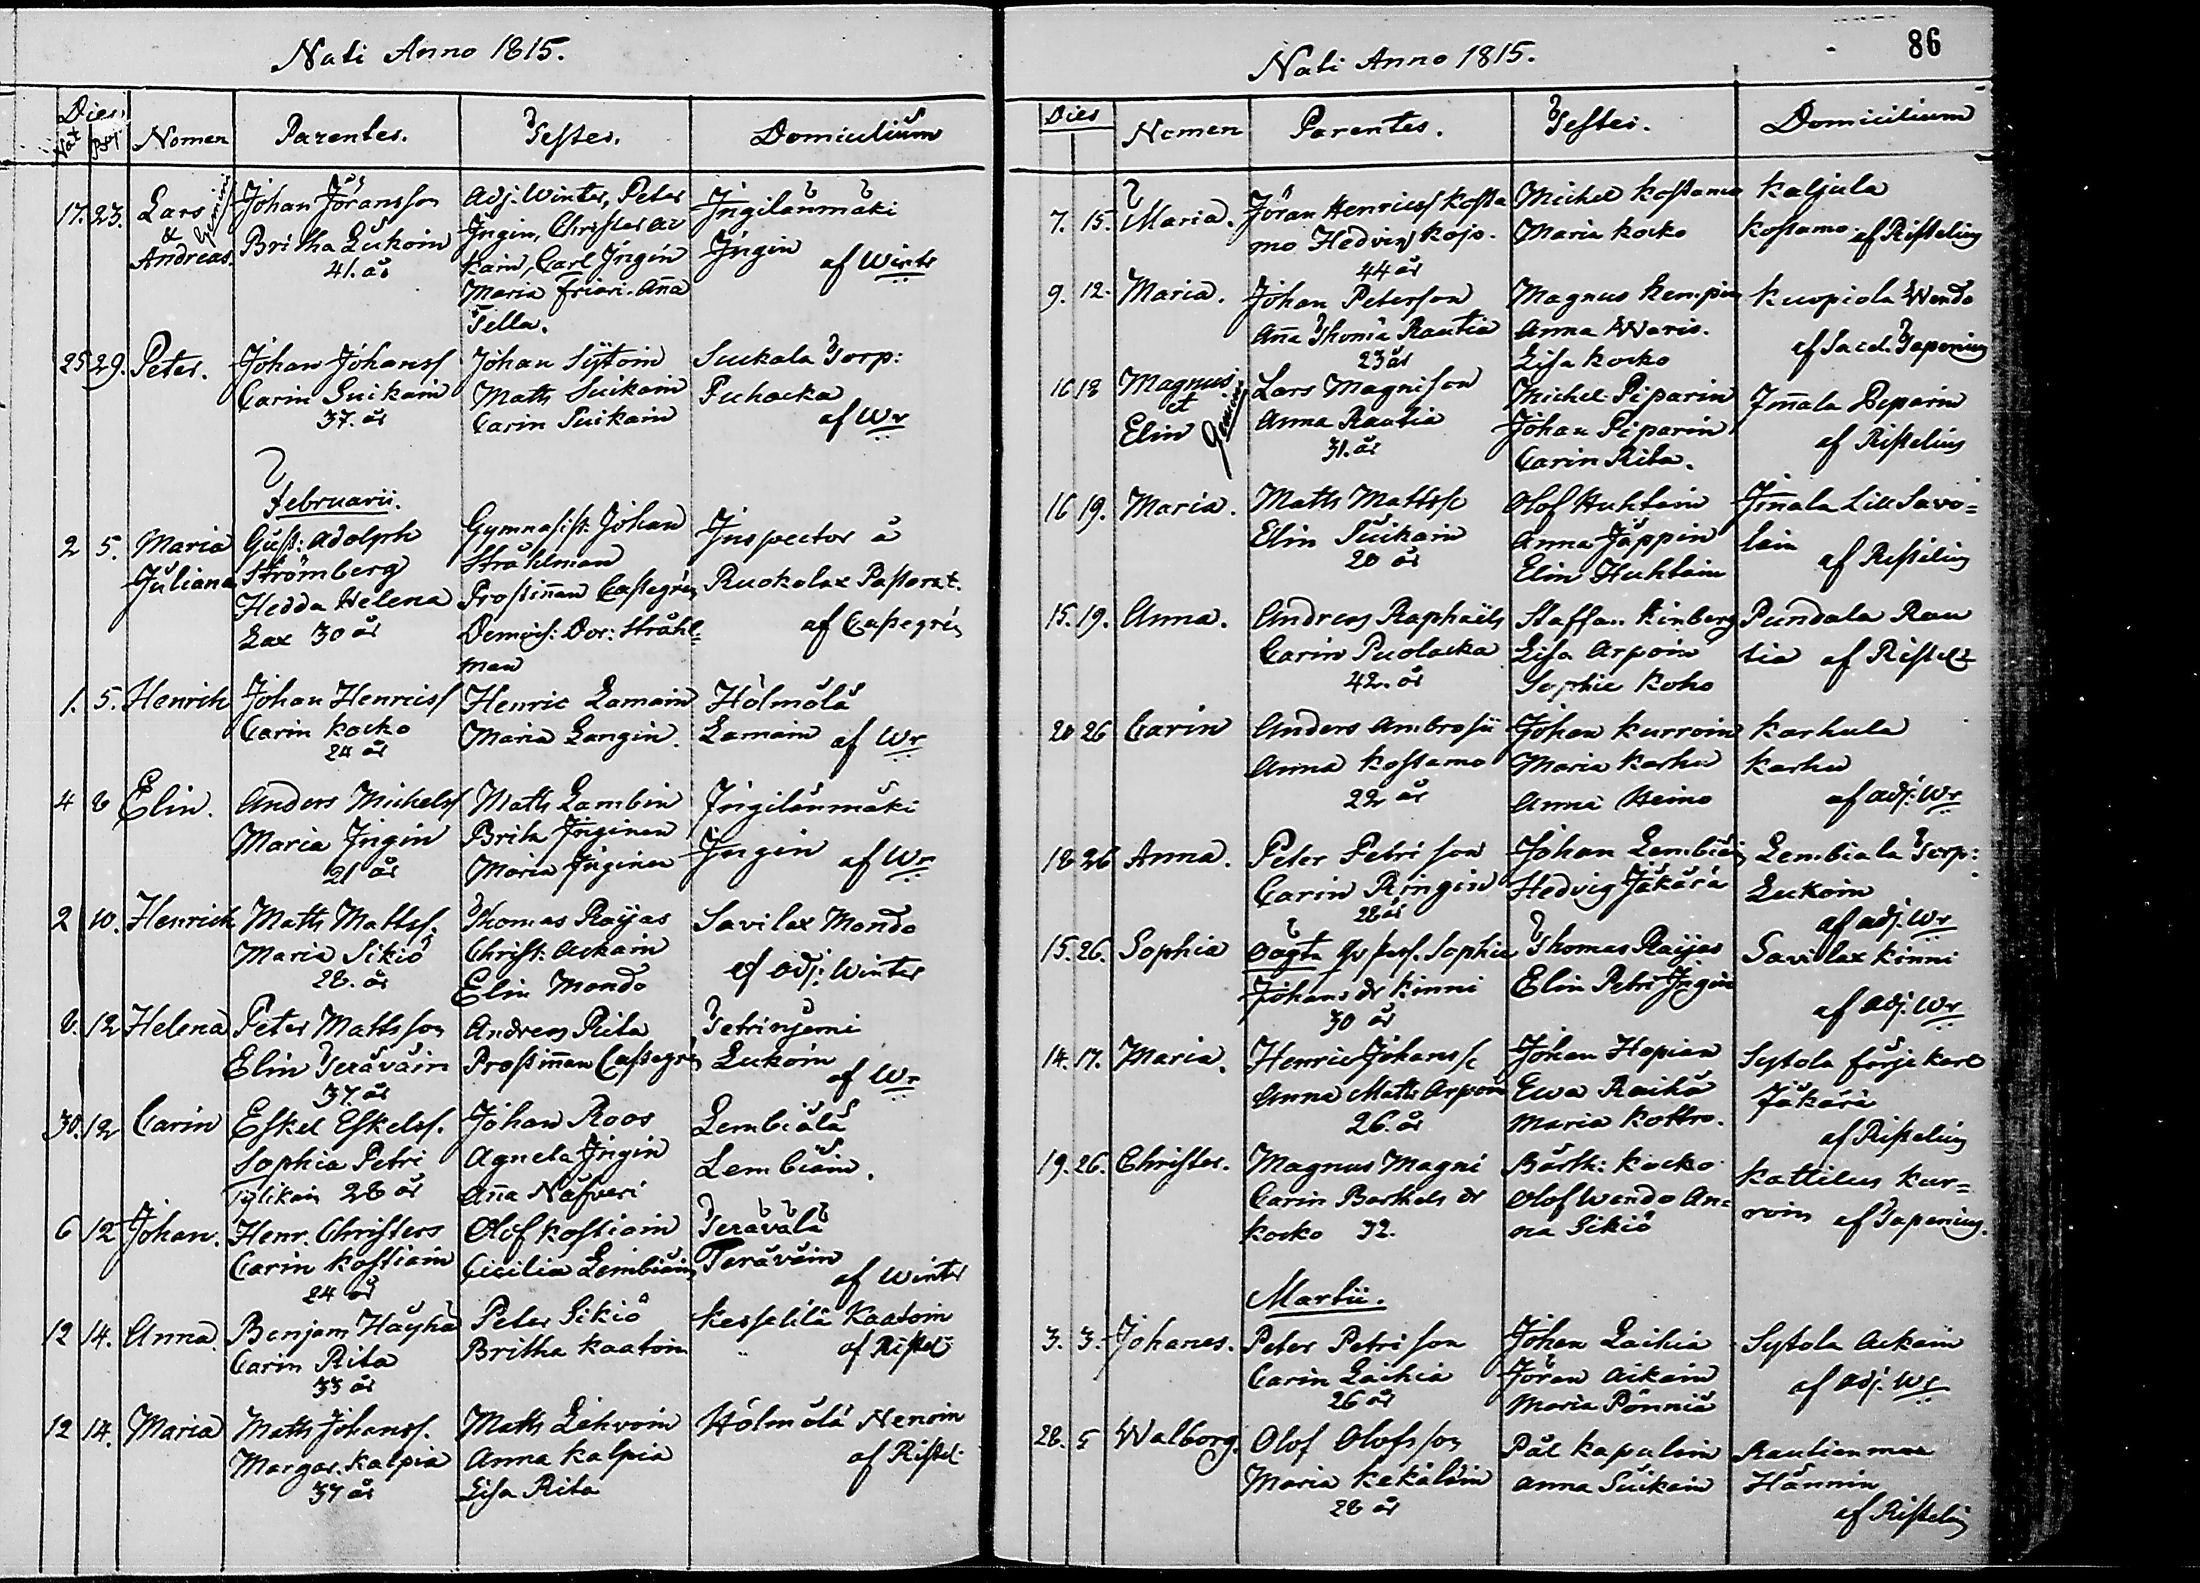 Nati Anno 1815.
Dies
Nat Bapt
Nomen
Parentes.
Testes.
Domicilium
17. 23. Lars & Andreas. Gemini
Johan Jöransson
Britha Lukoin
41. år
Adj. Winter, Peter
Ingin, Christer Ac
kain, Carl Ingin
Maria Friari. Aña
Tella.
Ingilänmäki
Ingin
af Wintr
25 29. Peter.
Johan Johanss
Carin Suikain
37. år
Johan Sÿtoin
Matts Suikain
Carin Suikain
Suikala Torp:
Puhacka
af Wr
Februarii.
2 5. Maria
Juliana
Gust: Adolph
Strömberg
Hedda Helena
Lax 30 år
Gymnasist: Johan
Stråhlman
Prostinnan Castegrén
Demois: Dor: Stråhl=
man
Inspector å
Ruokolax Pastorat.
af Castegrén
1. 5. Henrich
Johan Henricss
Carin Kocko
24 år
Henric Lamain
Maria Langin.
Hölmölä
Lamain af Wr
4 8 Elin.
Anders Michelss
Maria Ingin
21 år
Matts Lambin
Brita Inginen
Maria Inginen
Ingilänmäki
Ingin af Wr
2 10. Henrich
Matts Mattss.
Maria Sikiö
28. år
Thomas Raijas
Christ. Ackain
Elin Mondo
Savilax Mondo
af Adj: Winter
8. 12 Helena
Peter Mattsson
Elin Teräväin
37. år
Andreas Rita
Prostiñan Castegrén
Tetrinjemi
Lukoin
af Wr
30. 12 Carin
Eskel Eskelss.
Sophia Petri
Tylikain 28 år
Johan Roos
Agneta Ingin
Aña Näfveri
Lembiälä
Lembiäin.
6 12 Johan.
Henr. Christers
Carin Kostiain
24 år
Olof Kostiain
Cicilia Lembiäin
Terävälä
Teräväin
af Winter
12 14. Anna.
Benjam Häyhä
Carin Rita
33 år
Peter Sikiö
Britha Kaatoin
Kesselilä Kaatoin
af Ristel
12 14. Maria
Matts Johanss.
Margar. Kalpia
37 år
Matts Lähvoin
Anna Kalpia
Lisa Rita
Hölmölä Nenoin
af Ristel
Nati Anno 1815.
86
Dies
Nomen
Parentes.
Testes.
Domicilium
7. 15. Maria.
Jöran Henricss Kosta
mo Hedvig Kojo.
44 år
Michel Kostamo
Maria Kocko
Kaljula
Kostamo. af Ristelius
9. 12. Maria.
Johan Peterson
Aña Thomæ Rautia
23 år
Magnus Kempin
Anna Waris.
Lisa Kocko
Kuopiola Wendo
af Sacd. Tapenius
16 18 Magnus.
et
Elin Gemini
Lars Magnison
Anna Rautia
31. år
Michel Piparin
Johan Piparin
Carin Rita.
Imala Peparin
af Ristelius
16 19. Maria.
Matts Mattss
Elin Suikain
20 år
Olof Huhtain
Anna Jäppin
Elin Huhtain
Imala Lill Savo=
lain
af Ristelius
15. 19. Anna.
Andreas Raphaëls
Carin Puolacka
42. år
Staffan Kinberg
Lisa Arpoin
Sophie Koho
Pundala Rau
tia af Ristel
20 26 Carin
Anders Ambrosii
Anna Kostamo
22 år
Johan Kurroin
Maria Karhu
Anna Heino
Karhula
Karhu
af adj. Wr
18 26 Anna.
Peter Petri son
Carin Ringin
28 år
Johan Lembiäin
Hedvig Jäkärä
Lembiala Torp:
Lukoin
af adj. Wr
15. 26. Sophia
Oägta Sophia
Johans dr Kinni
30 år
Thomas Raijas
Elin Petri Ingin
Savilax Kinni
af Adj. Wr
14. 17. Maria.
Henric Johanss
Anna Matts Arpoin
26. år
Johan Hopian
Ewa Raikä
Maria Kottro.
Sytola färjekarl
Jäkärä
af Ristelius
19. 26. Christer.
Magnus Magni
Carin Barthels dr
Kocko 32.
Bärth: Kocko
Olof Wendo An=
na Sikiö
Kattilus Kur=
roin af Tapenius.
Martii.
3. 3. Johanes.
Peter Petri son
Carin Laihia
26 år
Johan Laihia
Jöran Aikain
Maria Pönniä
Sytola Ackain
af Adj. Wr
28. 5 Walborg.
Olof Olofsson
Maria Kekäläin
28 år
Pål Kapulain
Anna Suikain
Rautianmaa
Hännin
af Ristelius